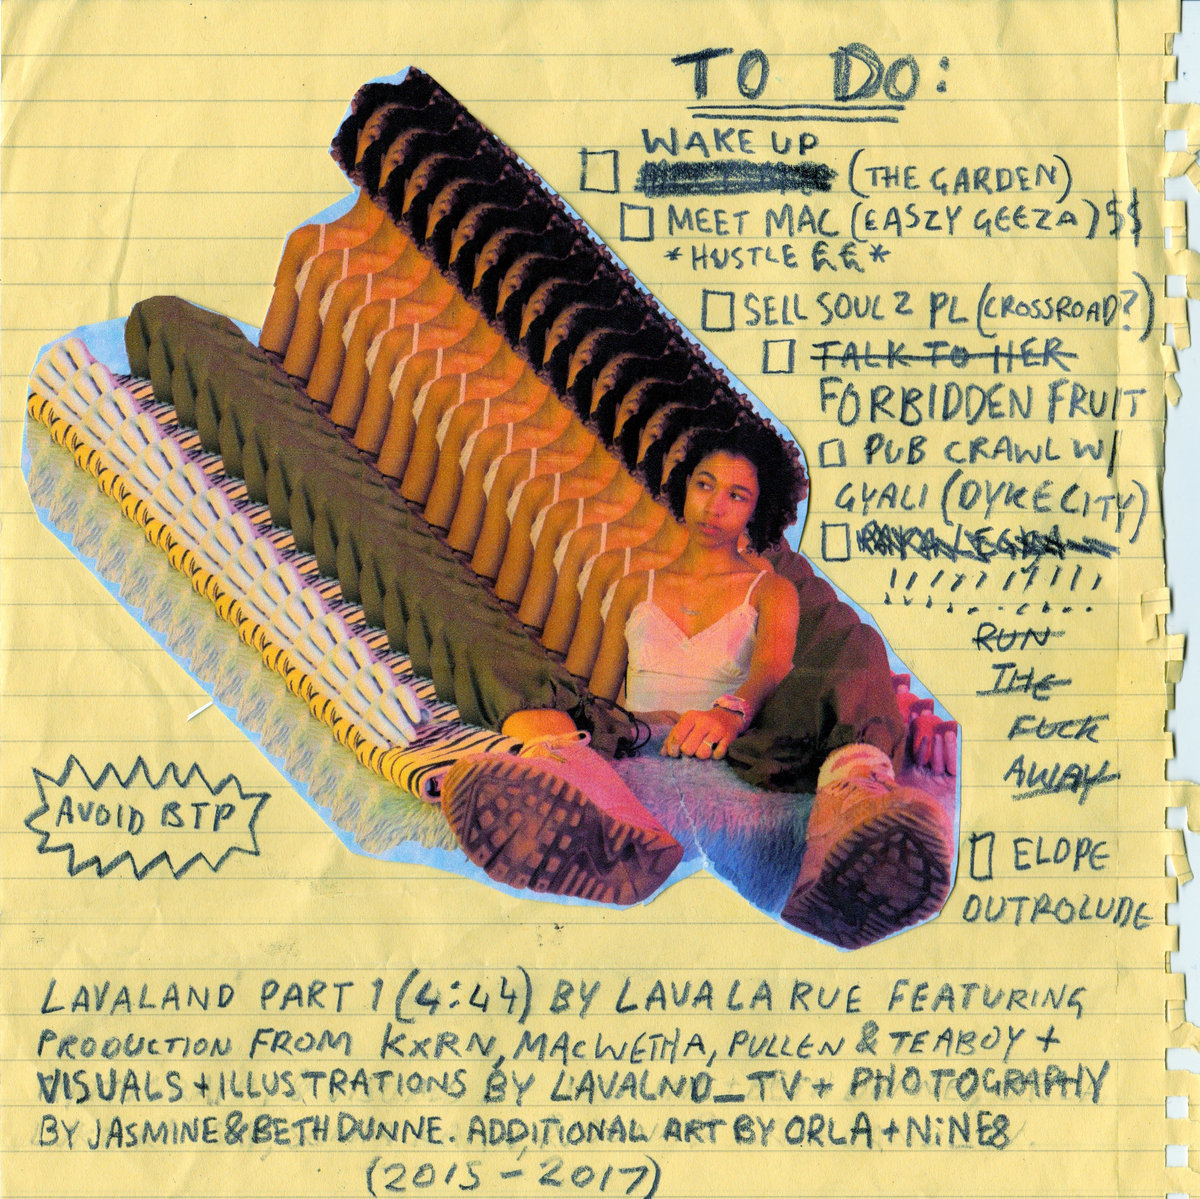 TO DO:
WAKE UP
(THE GARDEN)
MEET MAC (EASZY GEEZA) $$
*HUSTLE ££*
SELL SOUL 2 PL (CROSSROAD?)
TALK TO HER
FORBIDDEN FRUIT
PUB CRAWL W/
GYALI (DYKE CITY)
RUN
THE
FUCK
AWAY
ELOPE
OUTROLUDE
AVOID BTP
LAVALAND PART 1 (4:44) BY LAVA LA RUE FEATURING
PRODUCTION FROM KXRN, MACWETHA, PULLEN & TEABOY +
VISUALS + ILLUSTRATIONS BY LAVALND_TV + PHOTOGRAPHY
BY JASMINE & BETH DUNNE. ADDITIONAL ART BY ORLA + NiNE8
(2015 - 2017)